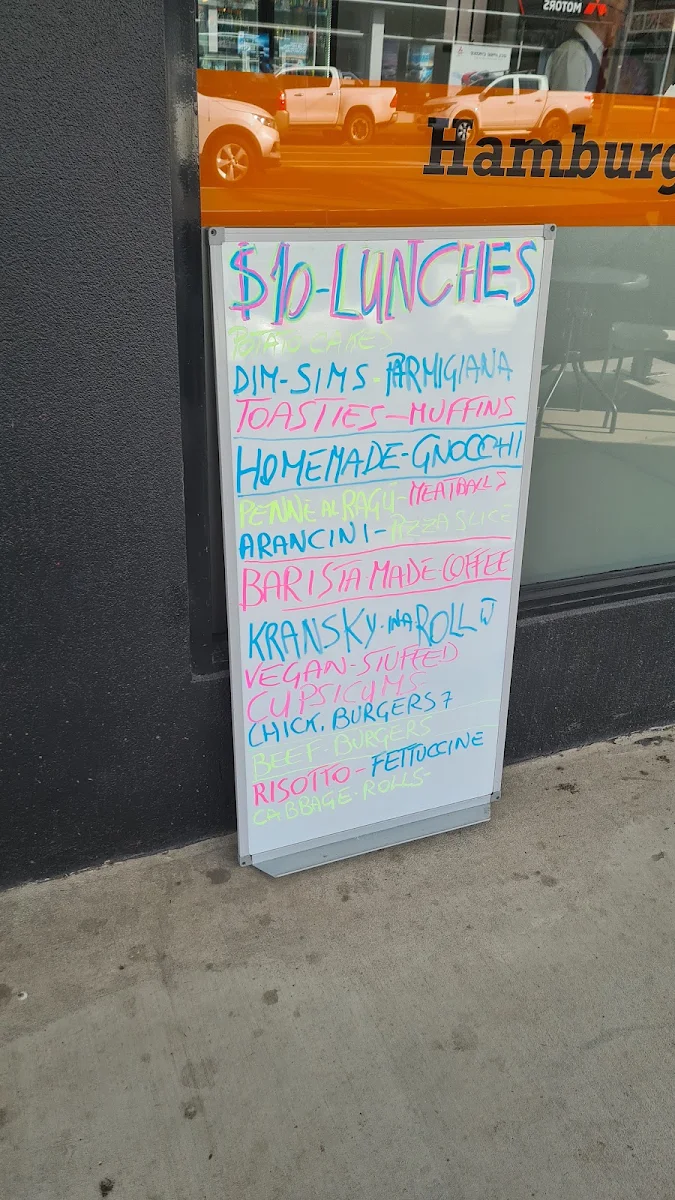 MOTORS
Hamburg
$10-LUNCHES
POTATO CAKES
DIM-SIMS-PARMIGIANA
TOASTIES-MUFFINS
HOMEMADE-GNOCCHI
PENNE AL RAGÚ-MEATBALLS
ARANCINI-PIZZA SLICE
BARISTA MADE COFFEE
KRANSKY IN A ROLL
VEGAN-STUFFED
CUPSICUMS
CHICK. BURGERS 7
BEEF BURGERS
RISOTTO-FETTUCCINE
CABBAGE-ROLLS-